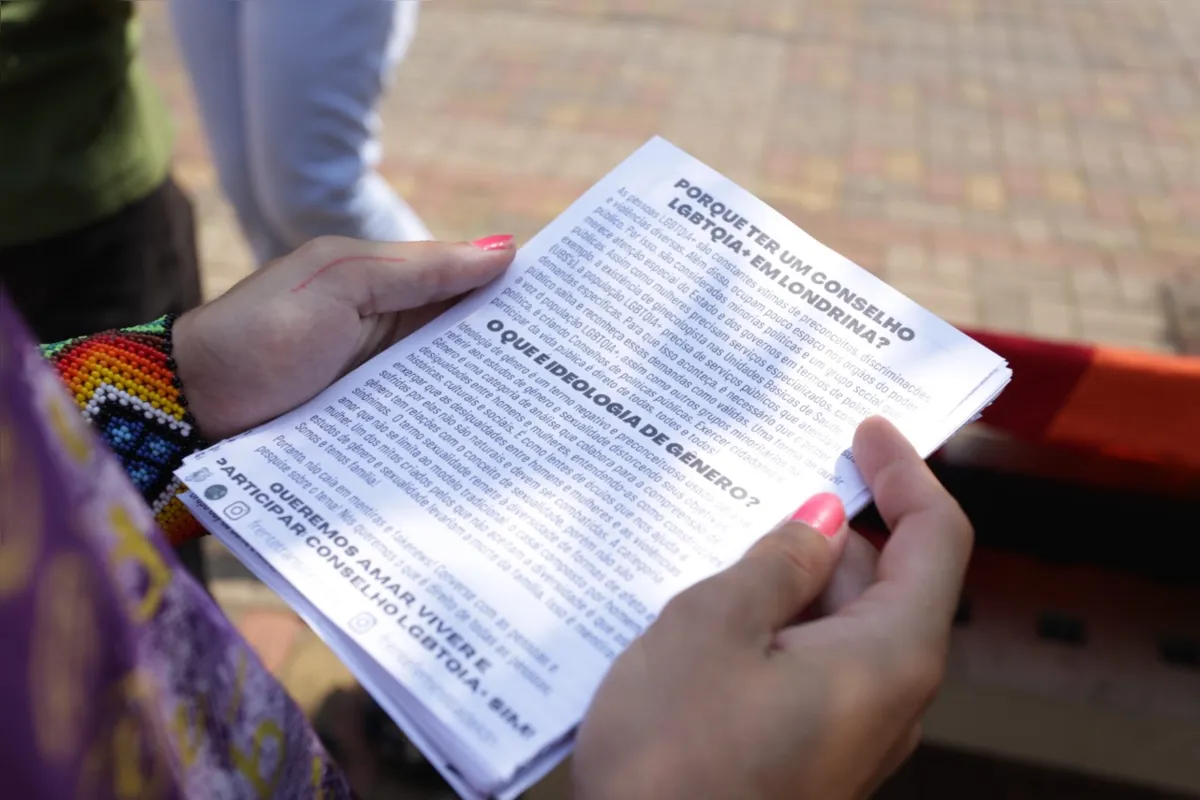 PORQUE TER UM CONSELHO
LGBTQIA+ EM LONDRINA?
As pessoas LGBTQIA+ são constantes vítimas de preconceitos, discriminações
e violências diversas. Além disso, ocupam pouco espaço nos órgãos do poder
público. Por isso, são considerados minorias políticas e um grupo social que
merece atenção especial do Estado e dos governos em termos de políticas
públicas. Assim como mulheres precisam serviços especializados, como
exemplo, a existência de ginecologista nas Unidades Básicas de Saúde
(UBS's), a população LGBTQIA+ precisa de serviços públicos que atenda
demandas específicas. Para que isso aconteça, é necessário que o
público saiba e reconheça essas demandas como válidas. Uma forma de
a voz d população LGBTQIA+, assim como outros grupos minoritários na
política, é criando Conselhos de políticas públicas. Exercer cidadania
participar da vida pública é direito de todas, todes e todos!
O QUE E IDEOLOGIA DE GÊNERO?
Ideologia de gênero é um termo negativo e preconceituoso usado
referir aos estudos de gênero e sexualidade distorcendo seus
Gênero é uma categoria de análise que colabora para a compreensão
desigualdades entre homens e mulheres, entendendo-as como construções
históricas, culturais e sociais. É como lentes de óculos que nos ajuda a
enxergar que as desigualdades entre homens e mulheres e as violências
sofridas por elas não são naturais e devem ser combatidas. A categoria
gênero tem relações com o conceito de sexualidade, porém não são
sinônimos. O termo sexualidade remete à diversidade de formas de afeto e
amor que não se limita ao modelo tradicional: o casal composto por homem
mulher. Um dos mitos criados pelos que não aceitam a diversidade é que
estudos de gênero e sexualidade levariam a morte da família. Isso é mentira
Somos e temos família!
Portanto, não caia em mentiras e fakenews! Converse com as pessoas e
pesquise sobre o tema! Nós queremos o que é direito de todas as pessoas.
QUEREMOS AMAR, VIVER E
PARTICIPAR CONSELHO LGBTQIA+ SIM!